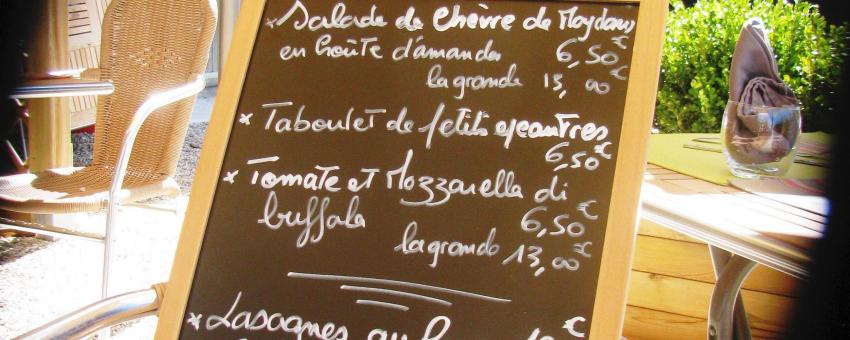 * Salade de Chèvre de Moydans
en croûte d'amandes 6,50€
la grande 13,00€
* Taboulet de petits epeautres
6,50€
* Tomate et Mozzarella di
buffala 6,50€
la grande 13,00€
* Lasagnes au